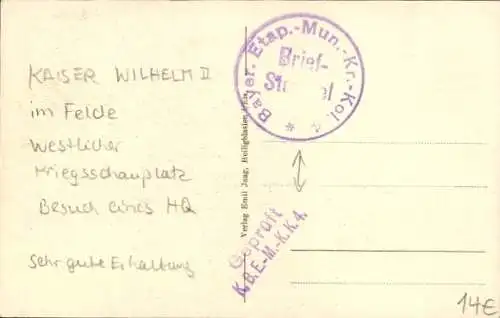 KAISER WILHELM II
im Felde
Westlicher
Kriegsschauplatz
Besuch eines HQ
Sehr gute Erhaltung
Verlag Emil Jaag,
Bayer. Etap.-Mun.-Kr.-Kol.
Brief-
Geprüft
K.B.E.-M.-K.K.4.
14€